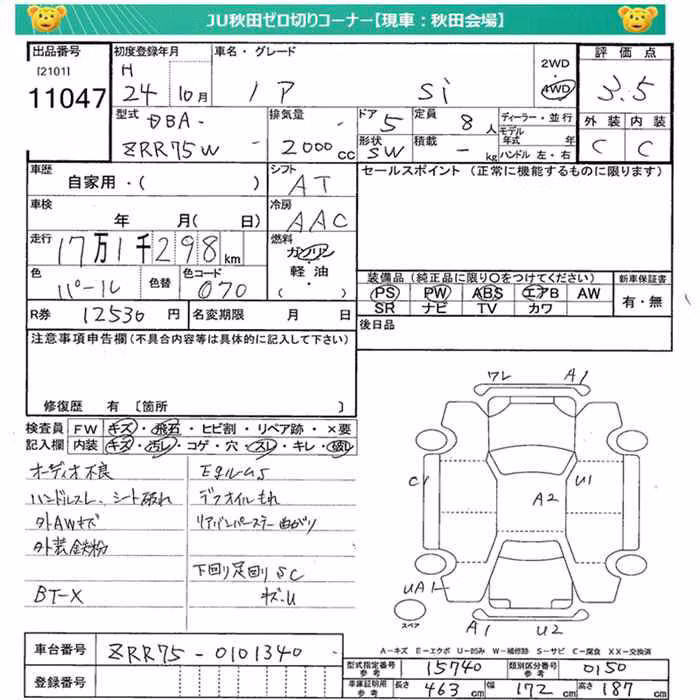 JU秋田ゼロ切りコーナー【現車：秋田会場】
出品番号 初度登録年月 車名・グレード 2WD 評価点
[2101] H 4WD
11047 24 10月 ノア Si 3.5
型式 排気量 ドア 定員 ディーラー・並行 外装 内装
DBA- 5 8人 モデル年式 年
ZRR75W - 2000cc 形状 SW 積載 - kg ハンドル 左・右 C C
車歴 シフト セールスポイント (正常に機能するものに限ります)
自家用・( ) AT
車検 冷房
年 月( 日) AAC
走行 燃料
17万1千298km ガソリン・
色 色替 色コード 軽油 装備品 (純正品に限り○をつけてください) 新車保証書
パール 070 ・( ) PS PW ABS エアB AW 有・無
SR ナビ TV カワ
R券 12530円 名変期限 月 日 後日品
注意事項申告欄(不具合内容等は具体的に記入して下さい)
修復歴 有 [箇所 ]
検査員 FW キズ・飛石・ヒビ割・リペア跡・×要
記入欄 内装 キズ・汚レ・コゲ・穴・スレ・キレ・破レ
オーディオ不良
ハンドルスレ、シート破れ デフオイルもれ
外AWキズ リアバンパーステー曲がり
外装鉄粉
下回り足回りSC
BT-X キズ・U
ワレ A1
C1 U1
A2
UA1
スペア A1 U2
A-キズ E-エクボ U-凹み W-補修跡 S-サビ C-腐食 XX-交換済
車台番号 ZRR75-0101340
型式指定番号 参考 15740 類別区分番号 参考 0150
登録番号 車庫証明用 参考 長さ 463cm 幅 172cm 高さ 187cm